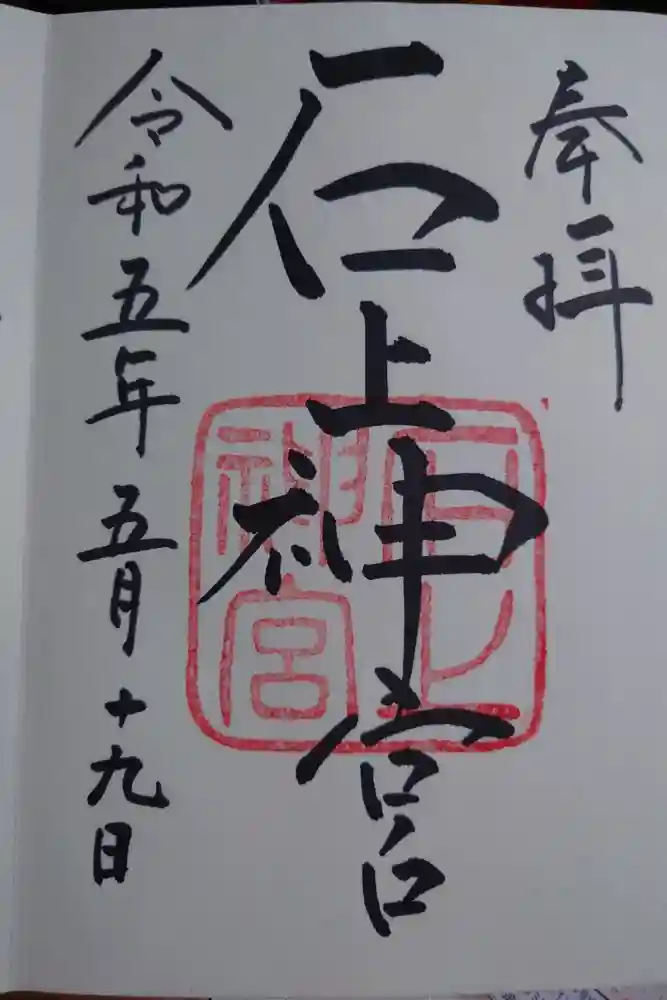 奉拝
石上神宮
石上神宮
令和五年五月十九日